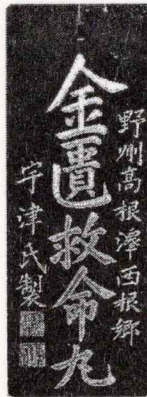 野州高根澤西根郷
金匱救命丸
宇津氏製